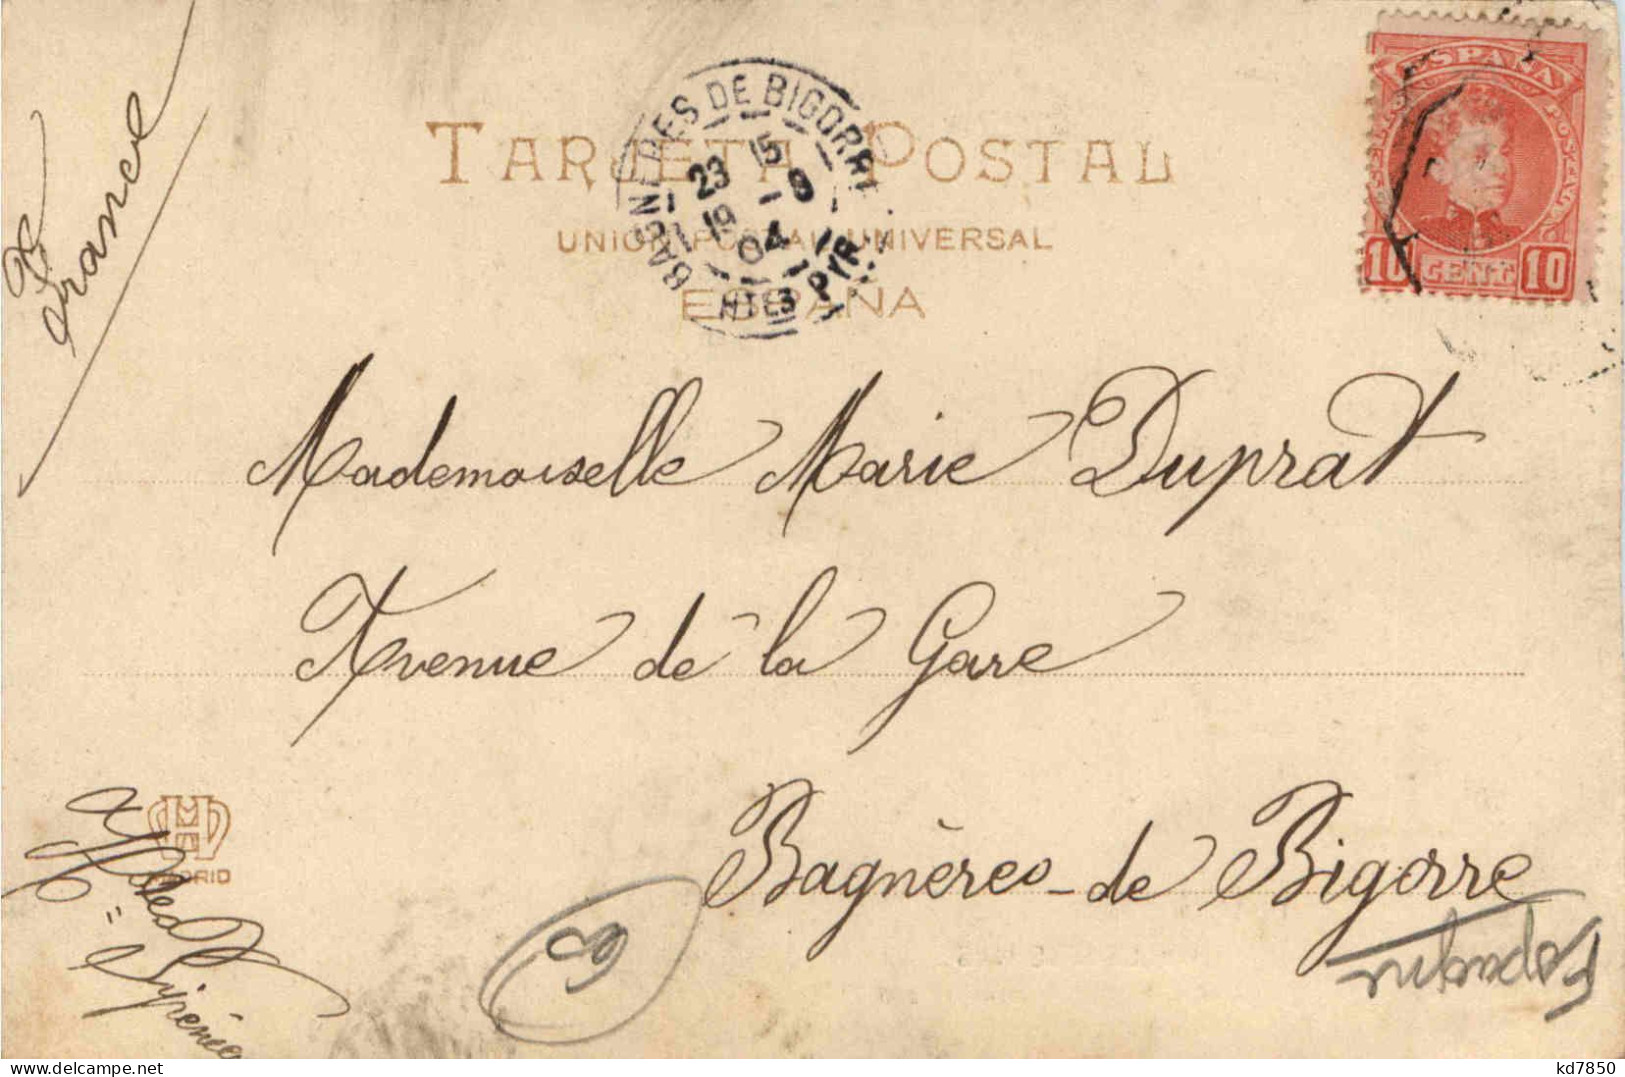 France
TARJETA POSTAL
UNION POSTAL UNIVERSAL
ESPAÑA
BAGNERES DE BIGORRE
23 15
1 9
19 04
HTES PYR.
ESPAÑA
10 CENT 10
Mademoiselle Marie Duprat
Avenue de la Gare
Bagnères-de Bigorre
MADRID
Htes Pyrénées
kd7850